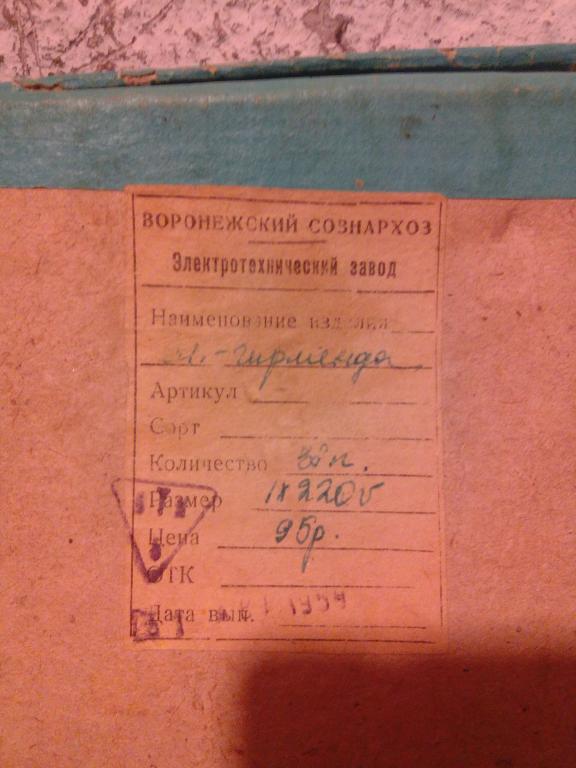 ВОРОНЕЖСКИЙ СОВНАРХОЗ
Электротехнический завод
Наименование изделия
Эл.-гирлянда
Артикул
Сорт
Количество
Размер 1х220v
Цена 95р.
ОТК
Дата вып.